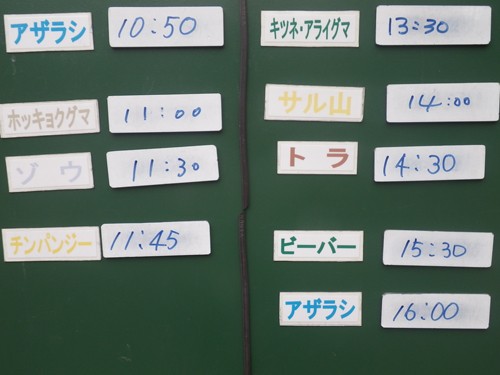 アザラシ 10:50
ホッキョクグマ 11:00
ゾウ 11:30
チンパンジー 11:45
キツネ・アライグマ 13:30
サル山 14:00
トラ 14:30
ビーバー 15:30
アザラシ 16:00